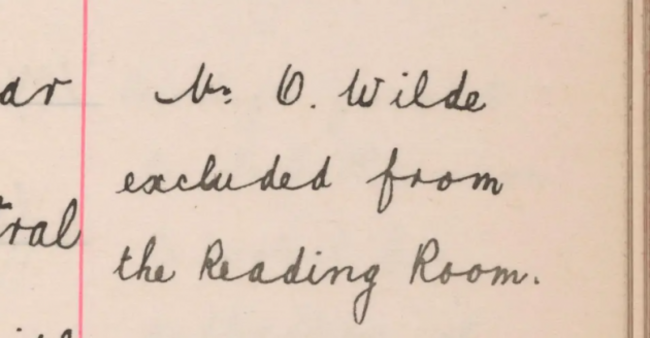 ar Mr. O. Wilde
excluded from
tral the Reading Room.